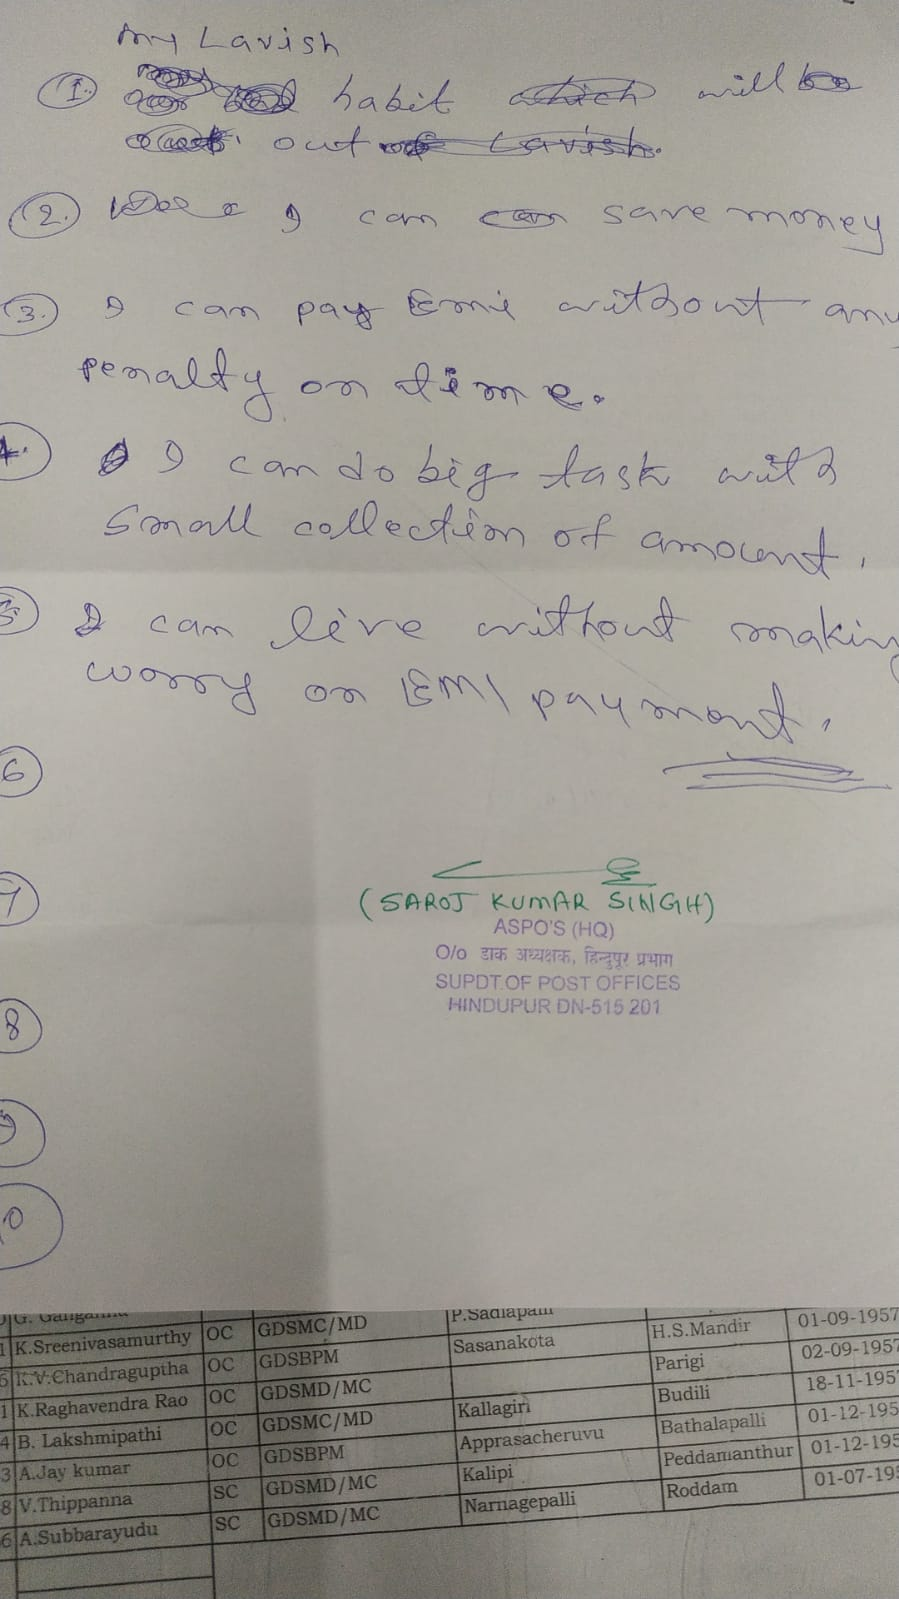 my Lavish
1. habit which will be
out of Lavish.
2. I can can save money
3. I can pay Emi without any
penalty on time.
4. I can do big task with
small collection of amount.
5. I can live without making
worry on EMI payment.
6
7
8
9
10
(SAROJ KUMAR SINGH)
ASPO'S (HQ)
O/o डाक अध्यक्षक, हिन्दुपूर प्रभाग
SUPDT.OF POST OFFICES
HINDUPUR DN-515 201
G. P.Sadlapalli
1 K.Sreenivasamurthy OC GDSMC/MD Sasanakota H.S.Mandir 01-09-1957
6 K.V.Chandraguptha OC GDSBPM Parigi 02-09-1957
1 K.Raghavendra Rao OC GDSMD/MC Kallagiri Budili 18-11-195
4 B. Lakshmipathi OC GDSMC/MD Apprasacheruvu Bathalapalli 01-12-195
3 A.Jay kumar OC GDSBPM Kalipi Peddamanthur 01-12-195
8 V.Thippanna SC GDSMD/MC Narnagepalli Roddam 01-07-195
6 A.Subbarayudu SC GDSMD/MC